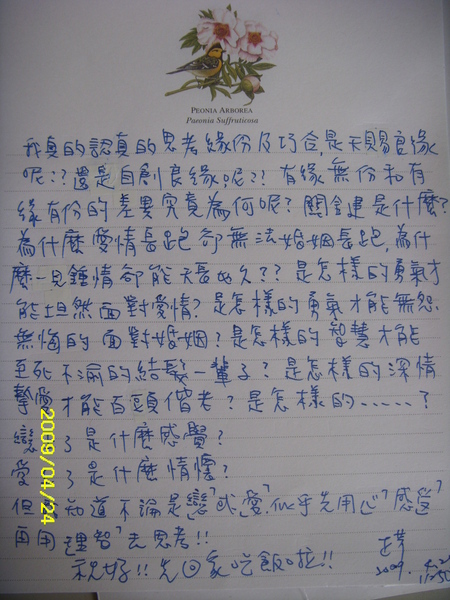 PEONIA ARBOREA
Paeonia Suffruticosa
我真的認真的思考緣份及巧合,是天賜良緣
呢??還是自創良緣呢?? 有緣無份和有
緣有份的差異究竟為何呢? 關鍵是什麼?
為什麼愛情長跑卻無法婚姻長跑,為什
麼一見鍾情卻能天長地久?? 是怎樣的勇氣才
能坦然面對愛情? 是怎樣的勇氣才能無怨
無悔的面對婚姻? 是怎樣的智慧才能
至死不渝的結髮一輩子? 是怎樣的深情
摯愛才能百頭偕老? 是怎樣的......?
戀了是什麼感覺?
愛了是什麼情懷?
但知道不論是"戀"或"愛",似乎先用心"感受"
再用"理智"去思考!!
祝好!! 先回家吃飯啦!!
2009.
2009/04/24